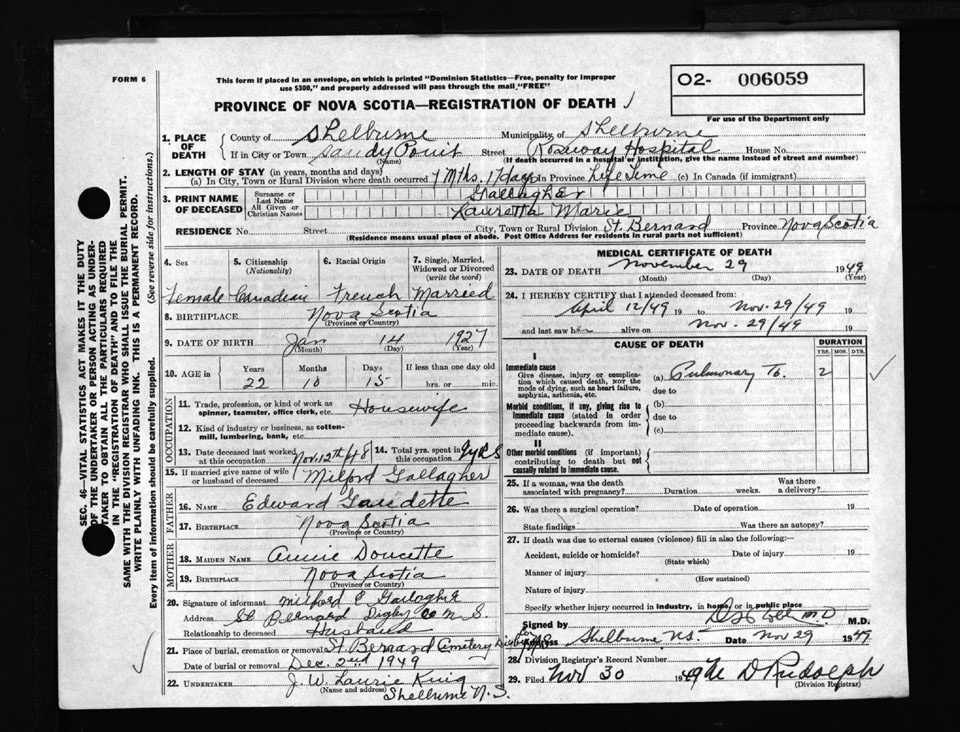 FORM 6
This form if placed in an envelope, on which is printed "Dominion Statistics—Free, penalty for improper use $300," and properly addressed will pass through the mail "FREE"
O2- 006059
For use of the Department only
PROVINCE OF NOVA SCOTIA—REGISTRATION OF DEATH
1. PLACE OF DEATH County of Shelburne Municipality of Shelburne
If in City or Town Sandy Point (Name) Street Roseway Hospital House No.
(If death occurred in a hospital or institution, give the name instead of street and number)
2. LENGTH OF STAY (in years, months and days)
(a) In City, Town or Rural Division where death occurred 7 Mths. 17 days In Province Life Time (c) In Canada (if immigrant)
3. PRINT NAME OF DECEASED Surname or Last Name Gallagher
All Given or Christian Names Lauretta Marie
RESIDENCE No. Street City, Town or Rural Division St. Bernard Province Nova Scotia
(Residence means usual place of abode. Post Office Address for residents in rural parts not sufficient)
4. Sex 5. Citizenship (Nationality) 6. Racial Origin 7. Single, Married, Widowed or Divorced (write the word)
Female Canadian French Married
8. BIRTHPLACE Nova Scotia
(Province or Country)
9. DATE OF BIRTH Jan 14 1927
(Month) (Day) (Year)
10. AGE in Years Months Days If less than one day old
22 10 15 hrs. or min.
OCCUPATION
11. Trade, profession, or kind of work as spinner, teamster, office clerk, etc. Housewife
12. Kind of industry or business, as cotton-mill, lumbering, bank, etc.
13. Date deceased last worked at this occupation Nov. 12th 48 14. Total yrs. spent in this occupation yrs
15. If married give name of wife or husband of deceased Milford Gallagher
FATHER
16. NAME Edward Gaudette
17. BIRTHPLACE Nova Scotia
(Province or Country)
MOTHER
18. MAIDEN NAME Annie Doucette
19. BIRTHPLACE Nova Scotia
(Province or Country)
20. Signature of informant Milford E Gallagher
Address St Bernard Digby Co N. S.
Relationship to deceased Husband
21. Place of burial, cremation or removal St Bernard Cemetery Digby Co
Date of burial or removal Dec. 2nd 1949
22. UNDERTAKER J. W. Laurie King
(Name and address) Shelburne N. S.
MEDICAL CERTIFICATE OF DEATH
23. DATE OF DEATH November 29 1949
(Month) (Day) (Year)
24. I HEREBY CERTIFY that I attended deceased from:
April 12/49 19 to Nov. 29/49 19
and last saw her alive on Nov. 29/49 19
CAUSE OF DEATH DURATION
YRS. MOS. DYS.
I
Immediate cause
Give disease, injury or complication which caused death, NOT the mode of dying, such as heart failure, asphyxia, asthenia, etc.
(a) Pulmonary Tb. 2
due to
Morbid conditions, if any, giving rise to immediate cause (stated in order proceeding backwards from immediate cause).
(b)
due to
(c)
II
Other morbid conditions (if important) contributing to death but not causally related to immediate cause.
25. If a woman, was the death associated with pregnancy? Duration weeks. Was there a delivery?
26. Was there a surgical operation? Date of operation 19
State findings Was there an autopsy?
27. If death was due to external causes (violence) fill in also the following:—
Accident, suicide or homicide? Date of injury 19
(State which)
Manner of injury
(How sustained)
Nature of injury
Specify whether injury occurred in industry, in home, or in public place
Signed by M.D.
Address Shelburne N.S. Date Nov 29 1949
28. Division Registrar's Record Number
29. Filed Nov 30 1949 D Rudolph
(Division Registrar)
SEC. 46—VITAL STATISTICS ACT MAKES IT THE DUTY
OF THE UNDERTAKER OR PERSON ACTING AS UNDERTAKER TO OBTAIN ALL THE PARTICULARS REQUIRED
IN THE "REGISTRATION OF DEATH" AND TO FILE THE
SAME WITH THE DIVISION REGISTRAR WHO SHALL ISSUE THE BURIAL PERMIT.
WRITE PLAINLY WITH UNFADING INK. THIS IS A PERMANENT RECORD.
Every item of information should be carefully supplied. (See reverse side for instructions.)